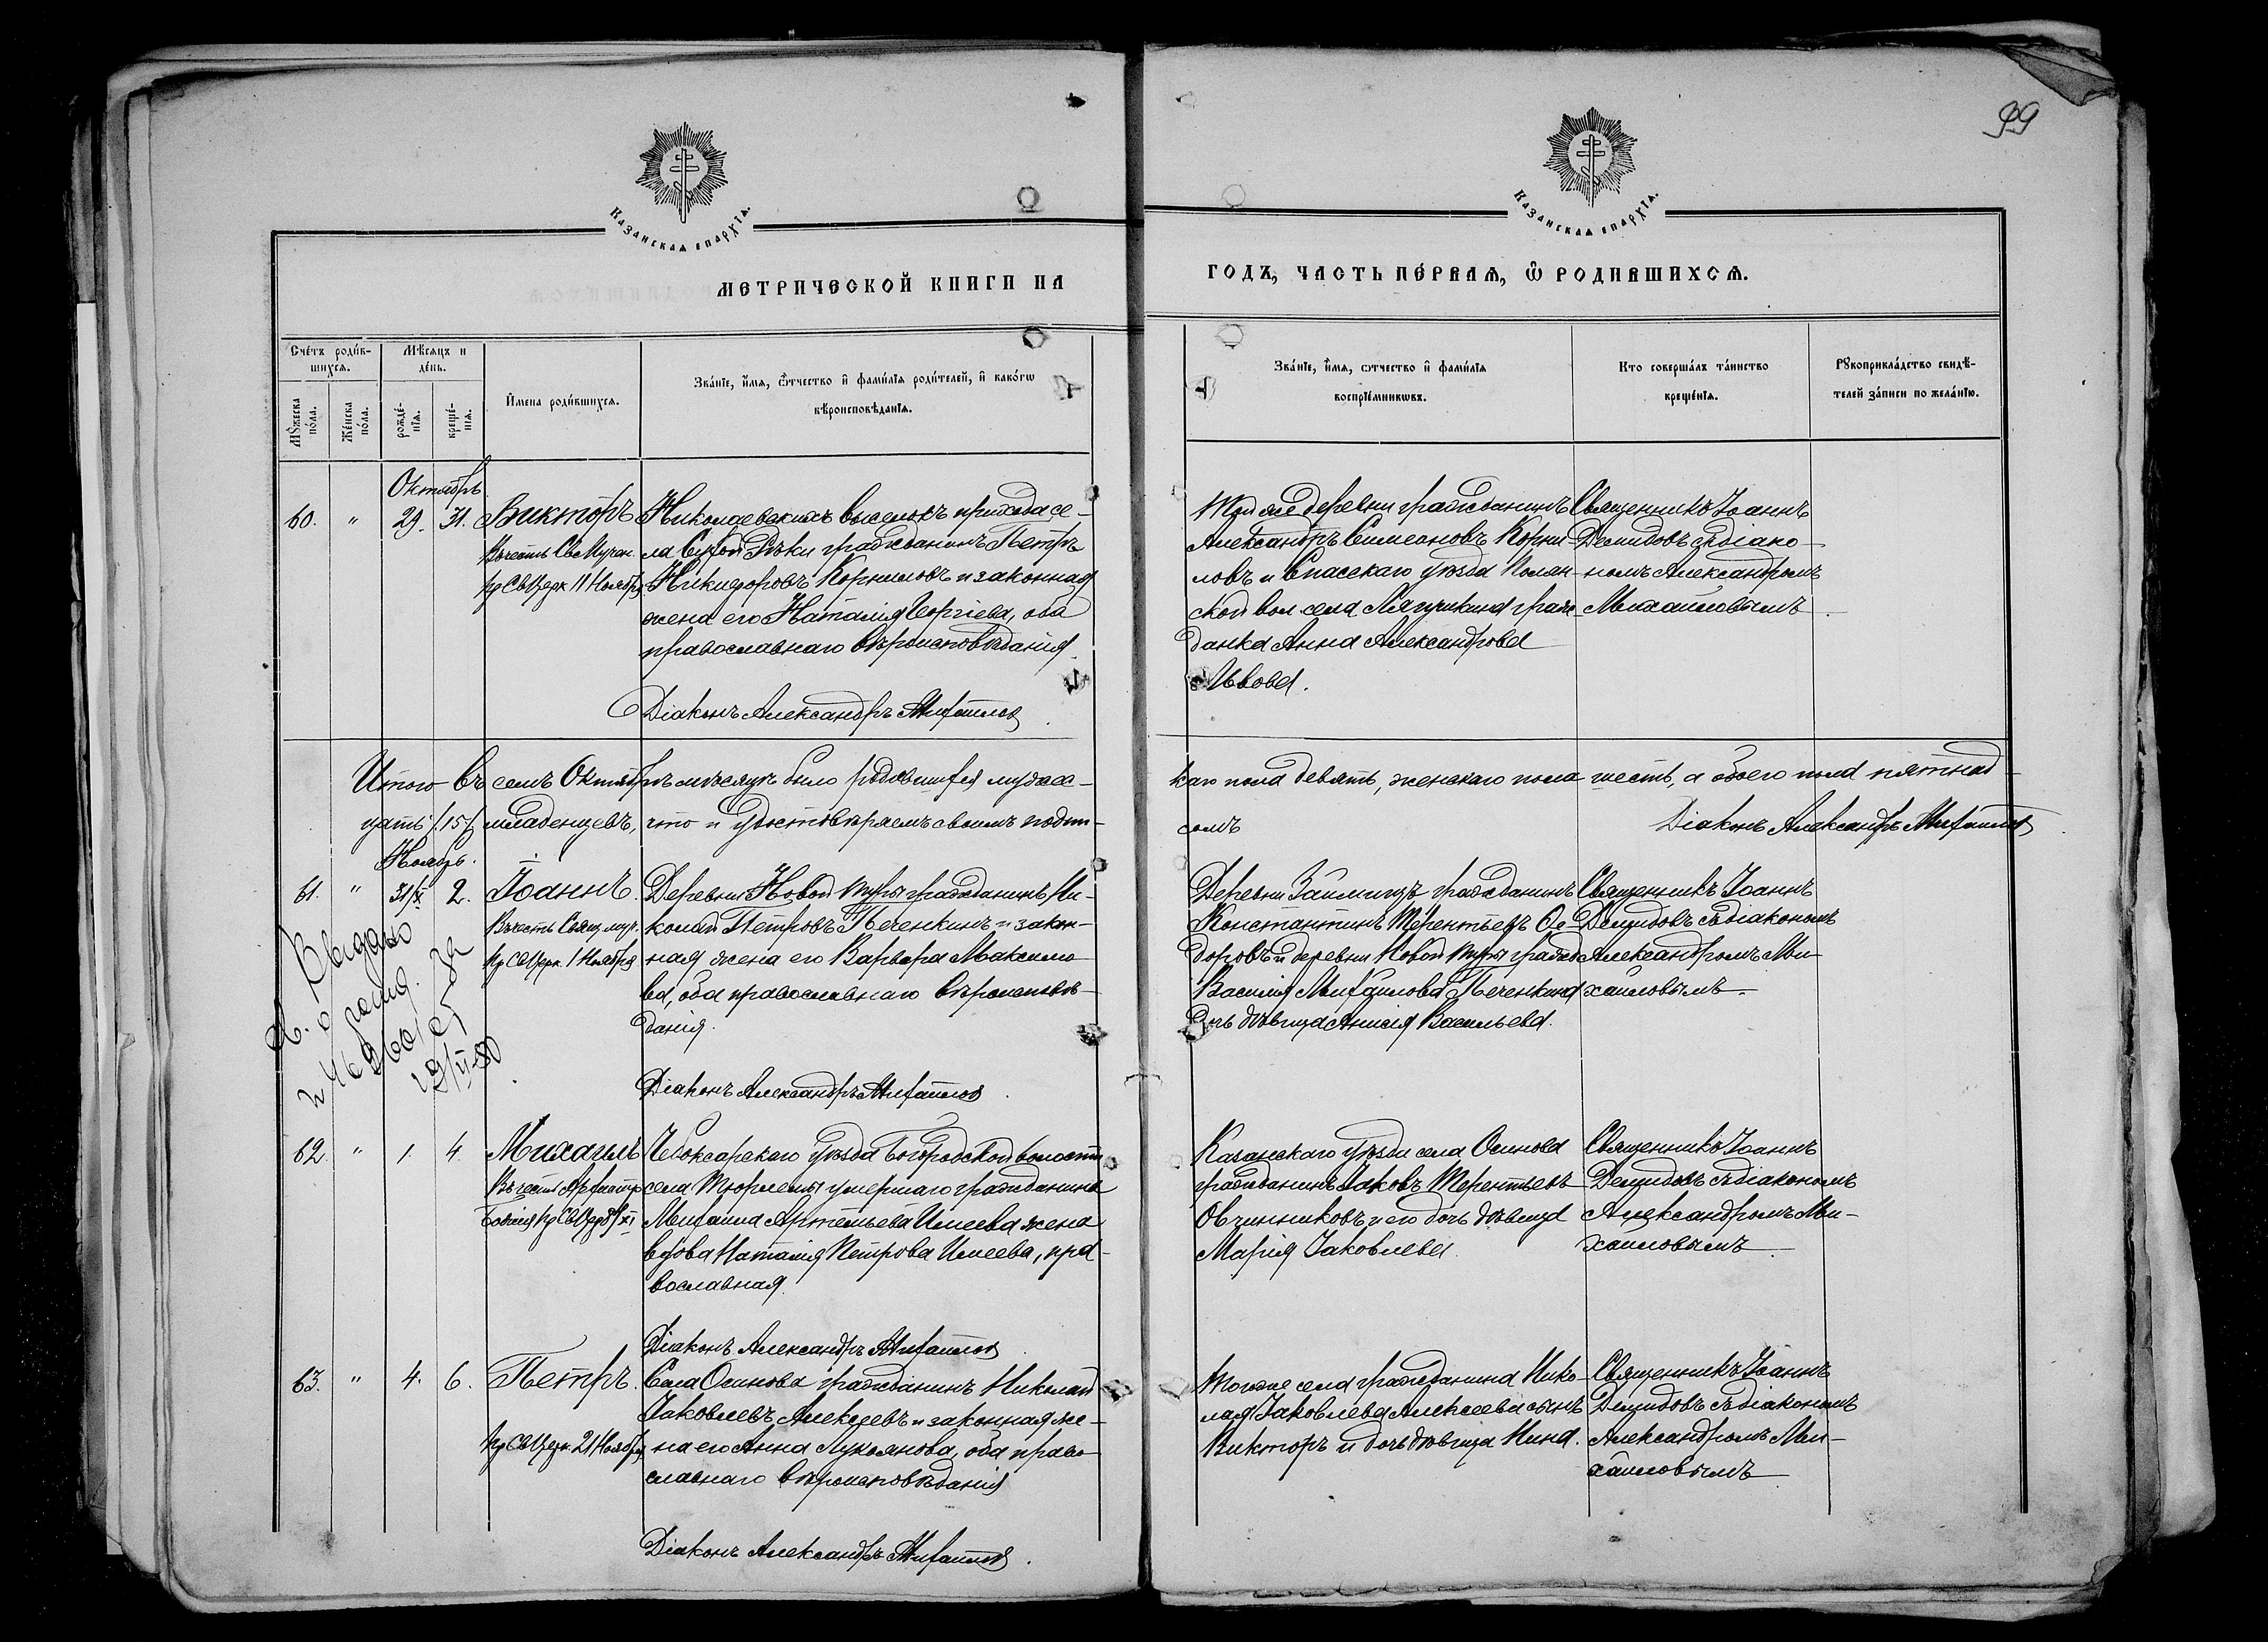 99
Казанская епархїа.
Казанская епархїа.
МЕТРИЧЕСКОЙ КНИГИ НА
ГОДЪ, ЧАСТЬ ПЕ́РВАЯ, Ѡ҆ РОДИВШИХСЯ.
Сче́тъ роди́в-
шихся.
Мѣ́сяцъ и
де́нь.
Мꙋ́жеска
по́ла.
Же́нска
по́ла.
рожде́-
нїя.
креще́-
нїя.
И҆мена роди́вшихся.
Зва́нїе, и҆́мя, ѻ҆́тчество и҆ фами́лїя роди́телей, и҆ како́гѡ
вѣроисповѣ́данїя.
Зва́нїе, и҆́мя, ѻ҆тчество и҆ фами́лїя
воспрїе́мникѡвъ.
Кто соверша́лъ та́инство
креще́нїя.
Рꙋкоприкла́дство свидѣ́-
телей за́писи по жела́нїю.
Октябрь
60. " 29. 31. Викторъ
Въ честь Св. Мучен.
пр Св Церк 11 Ноября
Николаевскихъ выселокъ прихода се-
ла Сухой Рѣки гражданинъ Петръ
Никифоровъ Корниловъ и законная
жена его Наталія Георгіева, оба
православнаго вѣроисповѣданія.
Діаконъ Александръ Михайлов
Той же деревни гражданинъ
Александръ Симеоновъ Корни
ловъ и Спасскаго уѣзда Полян-
ской вол села граж-
данка Анна Александрова
Львова.
Священникъ Іоаннъ
Демидовъ съ діако-
номъ Александромъ
Михайловымъ
Итого въ семъ Октябрѣ мѣсяцѣ было родившихся мужес-
каго пола девять, женскаго пола шесть, а обоего пола пятнад-
цать /15/ младенцевъ, что и удостовѣряемъ своимъ подпи-
сомъ
Діаконъ Александръ Михайлов
Ноябрь.
61. " 31/X 2. Іоаннъ.
Въ честь Свящ. муч.
пр Св Церк. 1 Ноября
Деревни Новой Туры гражданинъ Ни-
колай Петровъ Печенкинъ и закон-
ная жена его Варвара Максимо
ва, оба православнаго вѣроисповѣ-
данія.
Діаконъ Александръ Михайлов
Деревни Займищъ гражданинъ
Константинъ Терентьевъ Ѳе-
доровъ и деревни Новой Туры гражд
Василія Михайлова Печенкина
дочь дѣвица Анисія Васильева.
Священникъ Іоаннъ
Демидовъ съ діакономъ
Александромъ Ми-
хайловымъ.
Выдано
62. " 1. 4. Михаилъ
Въ честь Архистр
пр Св Церк 8/XI
Чебоксарскаго уѣзда Богородской волости
села Тюрлемы умершаго гражданина
Михаила Артемьева Имеева жена
вдова Наталія Петрова Имеева, пра-
вославная.
Діаконъ Александръ Михайлов
Казанскаго уѣзда села Осинова
гражданинъ Іаковъ Терентьевъ
Овчинниковъ и его дочь дѣвица
Марія Іаковлева.
Священникъ Іоаннъ
Демидовъ съ діакономъ
Александромъ Ми-
хайловымъ.
63. " 4. 6. Петръ.
пр Св Церк. 21 Ноября
Села Осинова гражданинъ Николай
Іаковлевъ Алексеевъ и законная же-
на его Анна Лукьянова, оба право
славнаго вѣроисповѣданія
Діаконъ Александръ Михайлов.
Того же села гражданина Нико-
лая Іаковлева Алексеева сынъ
Викторъ и дочь дѣвица Нина.
Священникъ Іоаннъ
Демидовъ съ діакономъ
Александромъ Ми-
хайловымъ